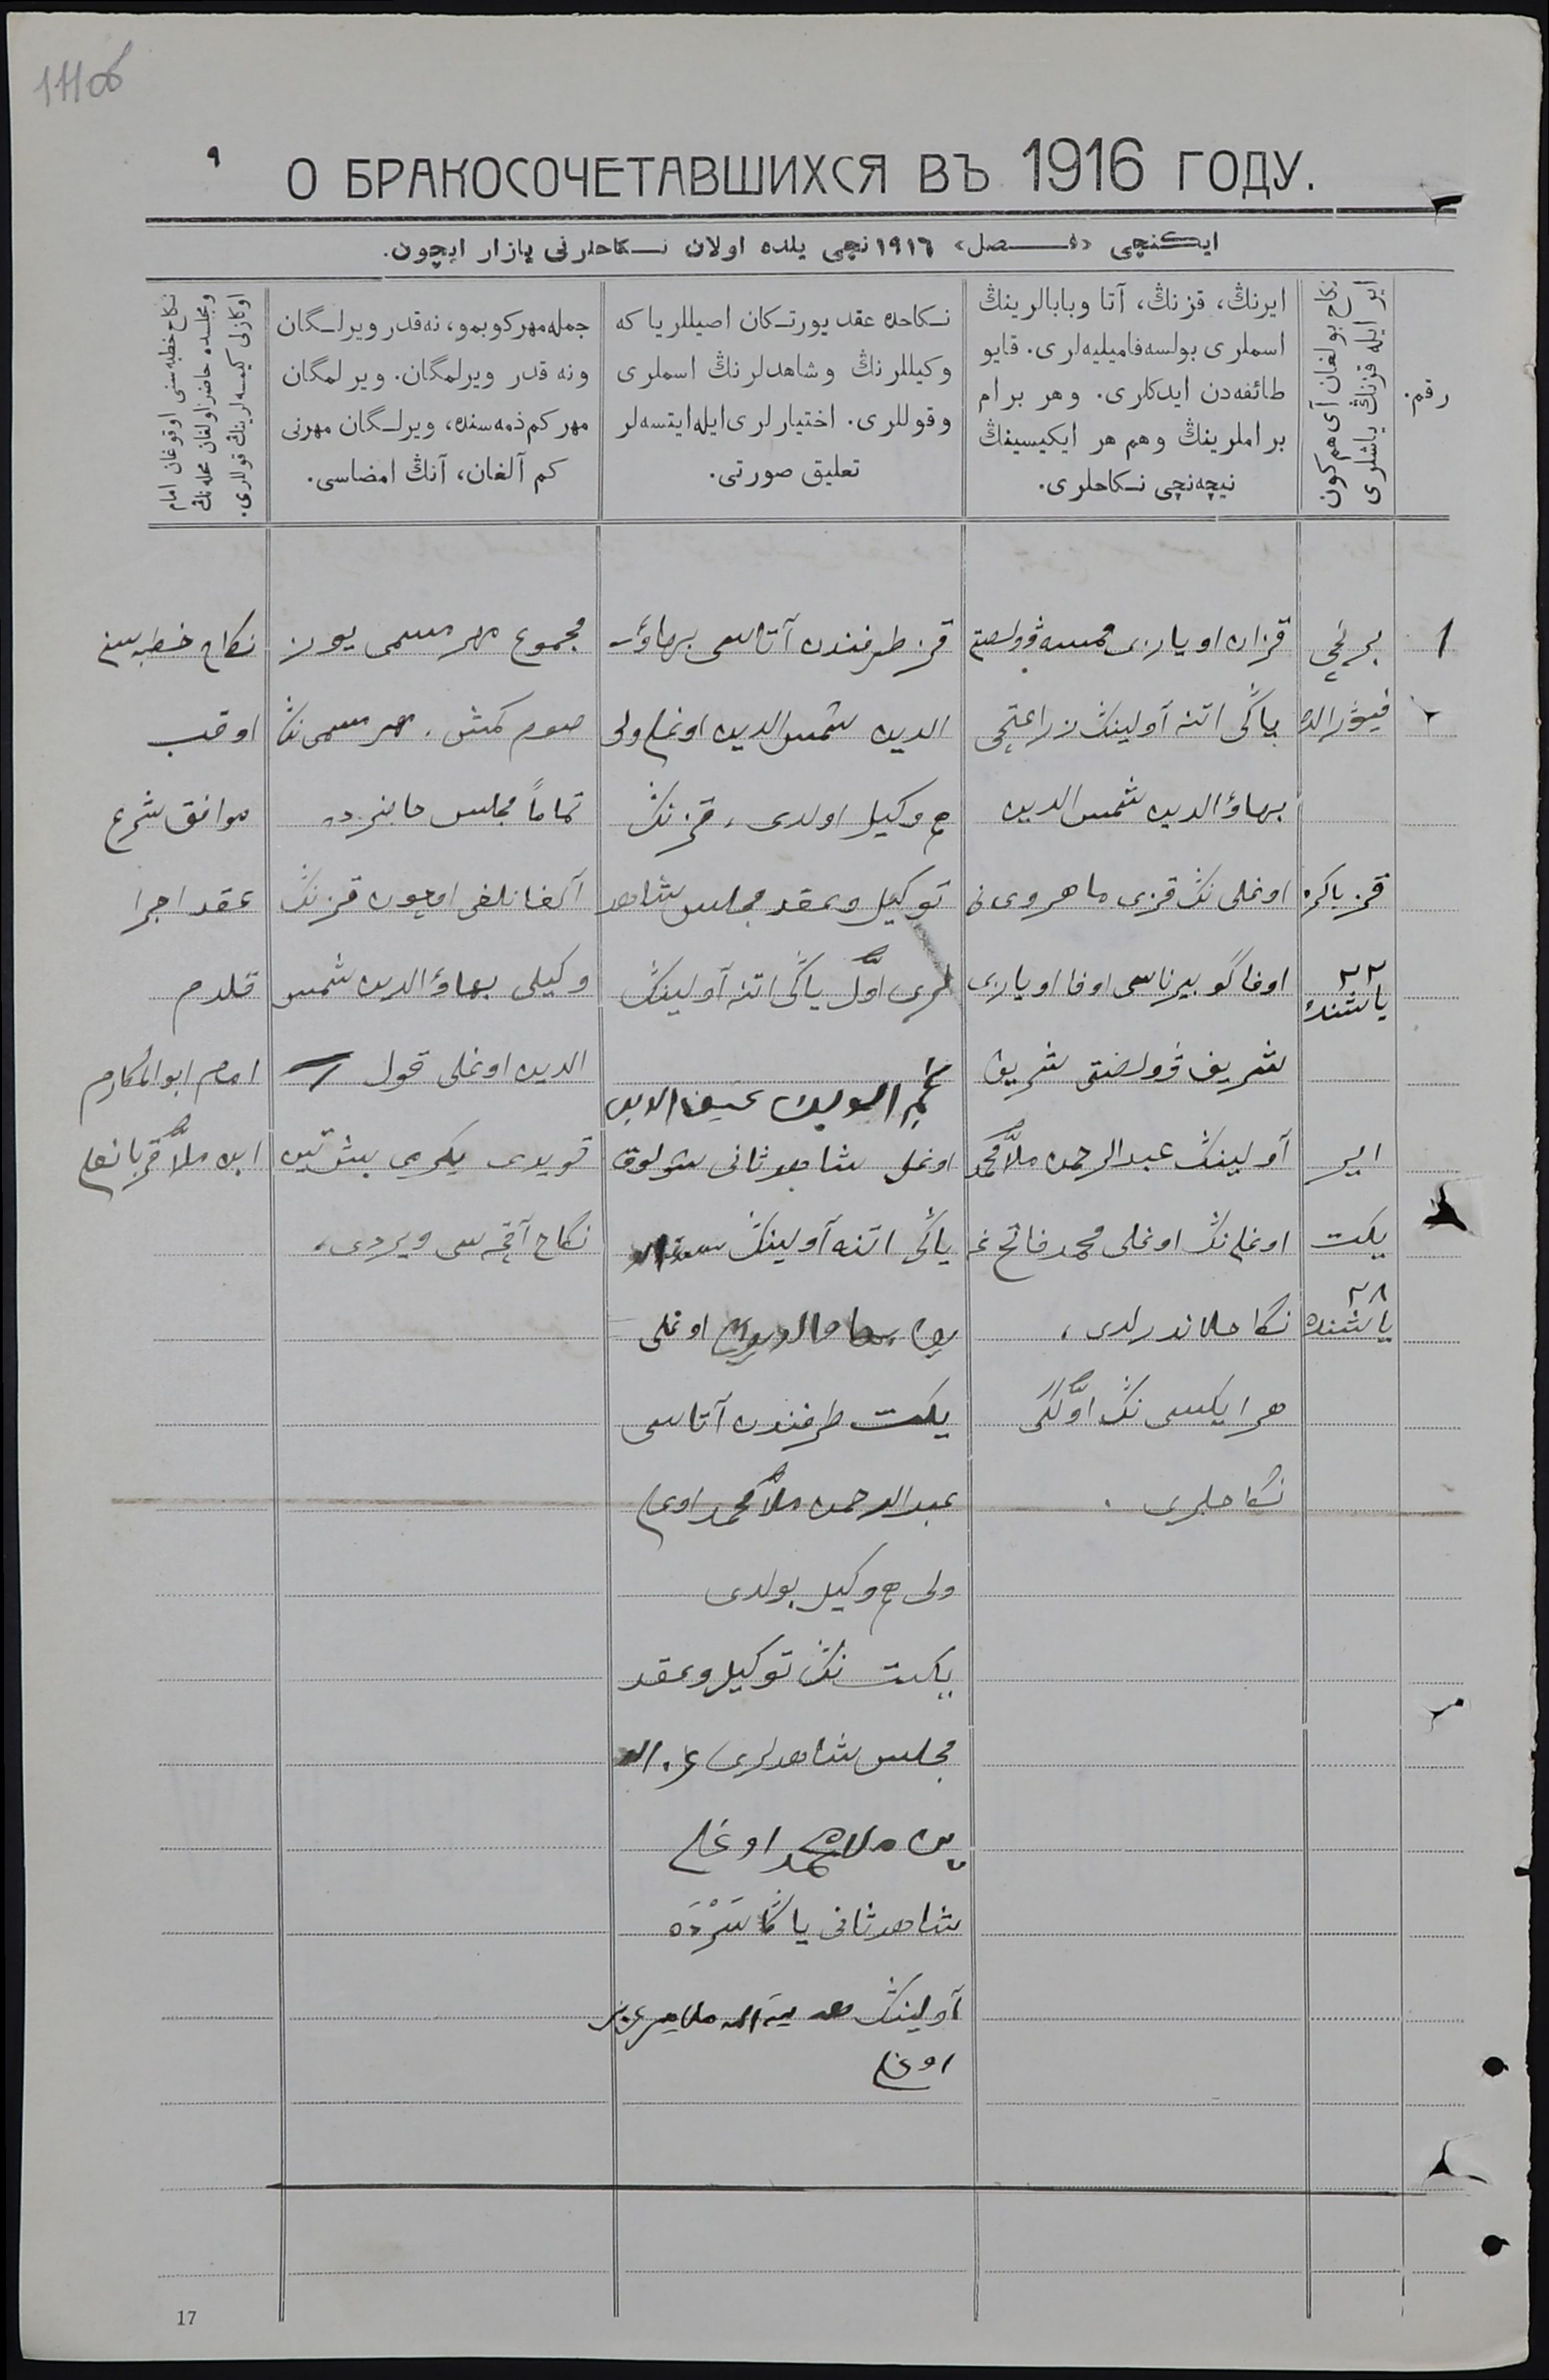 11106
٩
О БРАКОСОЧЕТАВШИХСЯ ВЪ 1916 ГОДУ.
ایکنچی «فصل» ١٩١٦نچی یلده اولان نکاحلرنی یازار ایچون.
رقم.
نکاح بولغان آی هم کون
ایر ایله قزنڭ یاشلری
ایرنڭ، قزنڭ، آتا وبابالرینڭ
اسملری بولسه فامیلیه‌لری. قایو
طائفه‌دن ایدکلری. وهر برام
براملرینڭ وهم هر ایکیسینڭ
نیچه‌نچی نکاحلری.
نکاحده عقد یورتکان اصیللر یا که
وکیللرنڭ وشاهدلرنڭ اسملری
وقوللری. اختیارلری ایله ایتسه‌لر
تعلیق صورتی.
جمله مهر کوبمو، نه‌قدر ویرلگان
ونه قدر ویرلمگان. ویرلمگان
مهر کم ذمه‌سنده، ویرلگان مهرنی
کم آلغان، آنڭ امضاسی.
نکاح خطبه‌سنی اوقوغان امام
ومجلسده حاضر اولغان محله‌نڭ
اوکازلی کیمسه‌لرینڭ قوللری.
1
برنچی
فیۋرالده
قز باکره
٢٢
یاشنده
ایر
یکت
٢٨
یاشنده
قزان اویازی ... ۋولصتی
یاڭی اتنه آولینڭ زراعتچی
بهاؤالدین شمس الدین
اوغلی نڭ قزی ماهروی نی
اوفا گوبیرناسی اوفا اویازی
شریف ۋولصتی شریف
آولینڭ عبدالرحمن ملامحمد
اوغلی نڭ اوغلی محمد فاتح غه
نکاحلاندرلدی،
هر ایکسی نڭ اوّلگی
نکاحلری.
قز طرفندن آتاسی بهاؤ
الدین شمس الدین اوغلی ولی
هم وکیل اولدی، قزنڭ
توکیل وعقد مجلس شاهد
لری اوّل یاڭی اتنه آولینڭ
نجم الدین سیف الدین
اوغلی شاهد ثانی شولوق
یاڭی اتنه آولینڭ
اوغلی
یکت طرفندن آتاسی
عبدالرحمن ملامحمد اوغلی
ولی هم وکیل بولدی
یکت نڭ توکیل وعقد
مجلس شاهدلری عزالد
ین ملامحمد اوغلی
شاهد ثانی یاڭا سَرْدَه
آولینڭ هدیةالله ...
اوغلی
مجموع مهر مسمی یوز
صوم کمش. مهر مسمی نڭ
تماماً مجلس حاضرده
آلغانلغی اوچون قزنڭ
وکیلی بهاؤالدین شمس
الدین اوغلی قول
قویدی یکرمی بیش تین
نکاح آقچه‌سی ویردی،
نکاح خطبه‌سن
اوقب
موافق شرع
عقد اجرا
قلدم
امام ابوالمکارم
ابن ملا قربانعلی
17